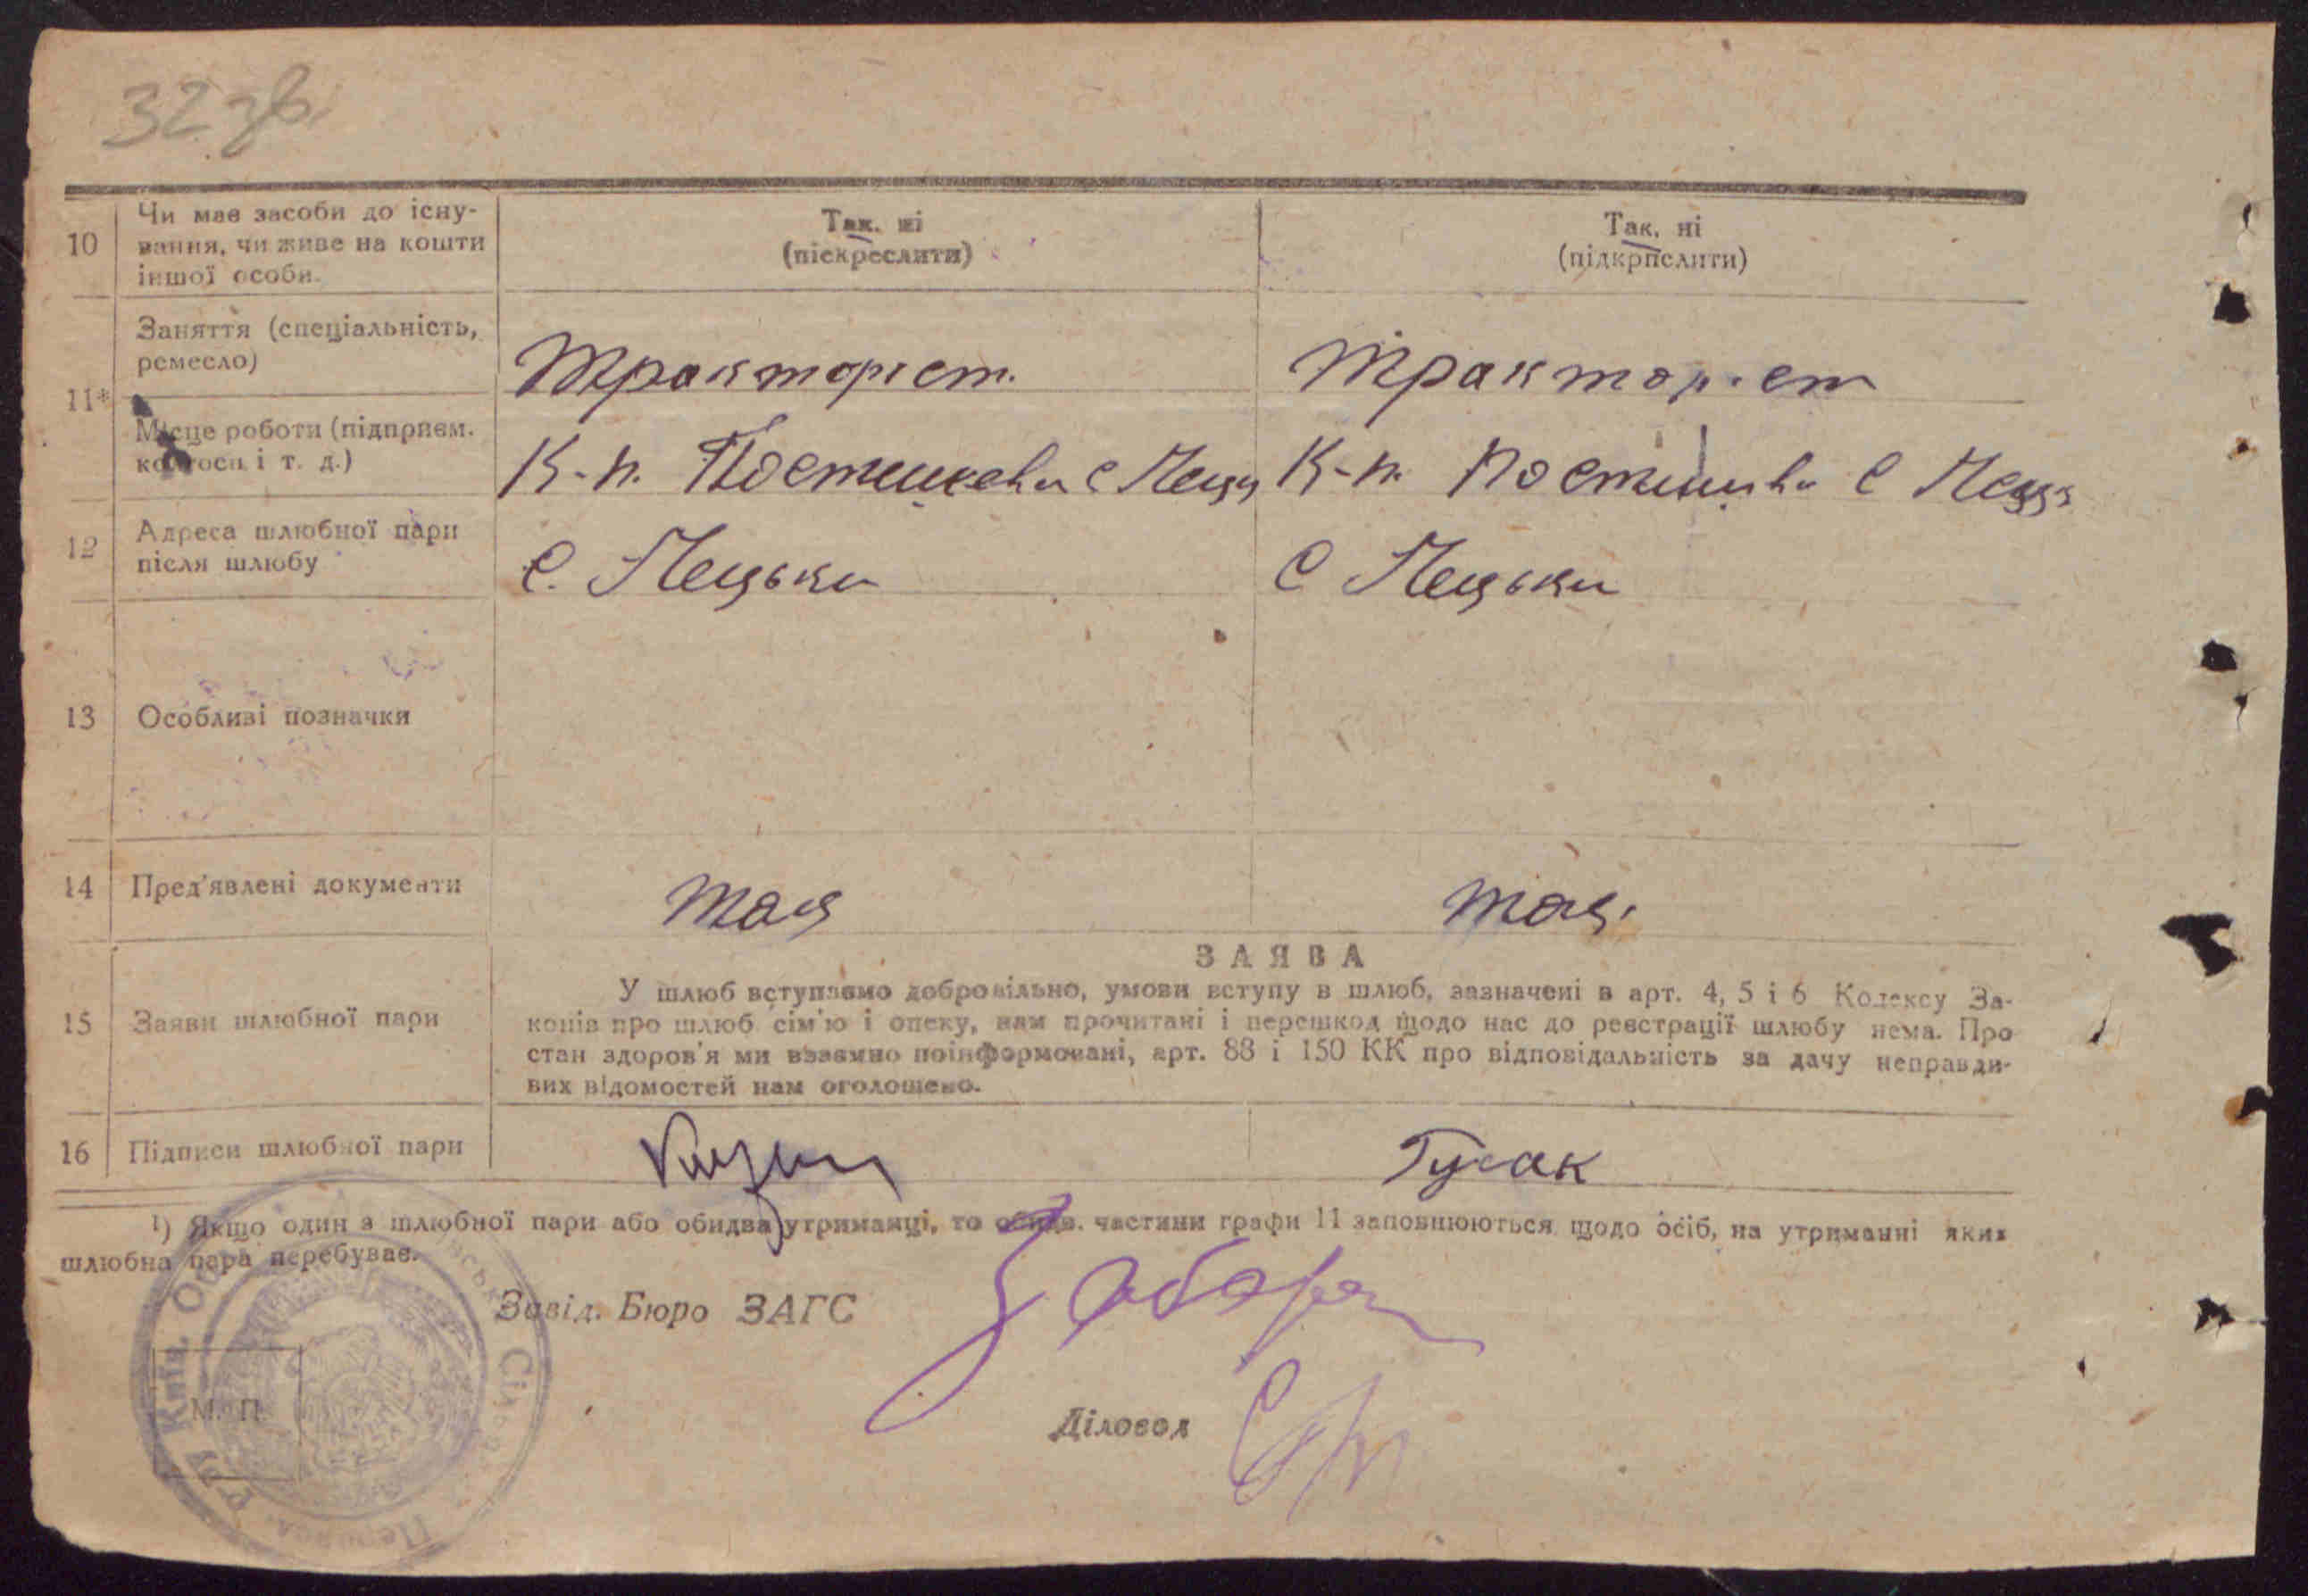 32 зв.
10
Чи має засоби до існу-
вання, чи живе на кошти
іншої особи.
Так. ні
(піскреслити)
Так, ні
(підкрпслити)
11*
Заняття (спеціальність,
ремесло)
Тракторіст.
Тракторіст
Місце роботи (підприєм.
колгосп і т. д.)
К-п. Постишева с
К-п. Постишева с
12
Адреса шлюбної пари
після шлюбу
с. Пецьки
с Пецьки
13
Особливі позначки
14
Пред'явлені документи
15
Заяви шлюбної пари
ЗАЯВА
У шлюб вступаємо добровільно, умови вступу в шлюб, зазначені в арт. 4, 5 і 6 Кодексу За-
конів про шлюб сім'ю і опеку, нам прочитані і перешкод щодо нас до реєстрації шлюбу нема. Про
стан здоров'я ми взаємно поінформовані, арт. 88 і 150 КК про відповідальність за дачу неправди-
вих відомостей нам оголошено.
16
Підписи шлюбної пари
Гусак
1) Якщо один з шлюбної пари або обидва утриманці, то обидв. частини графи 11 заповнюються щодо осіб, на утриманні яких
шлюбна пара перебуває.
Завід. Бюро ЗАГС
М. П.
Діловод